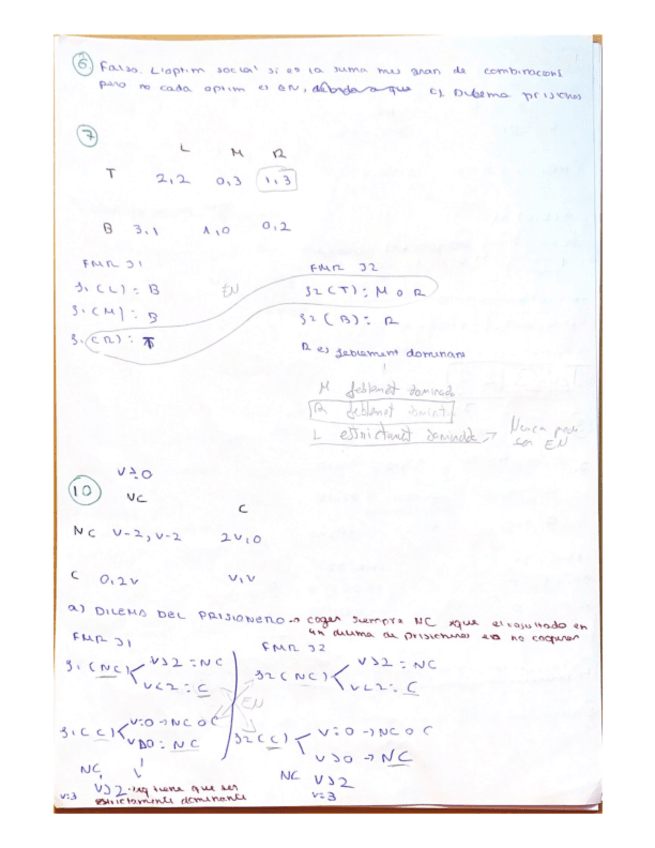 6 Falso. L'optim social si es la suma mes gran de combinacions
pero no cada optim es EN, Dilema prisoners
7
L M R
T 2,2 0,3 1,3
B 3,1 1,0 0,2
FMR J1 FMR J2
J1(L): B EN J2(T): M o R
J1(M): B J2(B): R
J1(R): T
R es feblement dominant
M feblement dominada
R feblement
L estrictament dominada → Nunca
ser EN
V≥0
10 NC
C
NC V-2, V-2 2V,0
C 0,2V V,V
a) DILEMA DEL PRISIONERO → coger siempre NC xque el resultado en
un dilema de prisioneros es no cooperar
FMR J1 FMR J2
J1(NC) V>2: NC J2(NC) V>2: NC
V<2: C V<2: C
EN
J1(C) V=0 → NC o C J2(C) V=0 → NC o C
V>0: NC V>0 → NC
NC V NC V>2
V>2 → tiene que ser V=3
V=3 estrictamente dominante